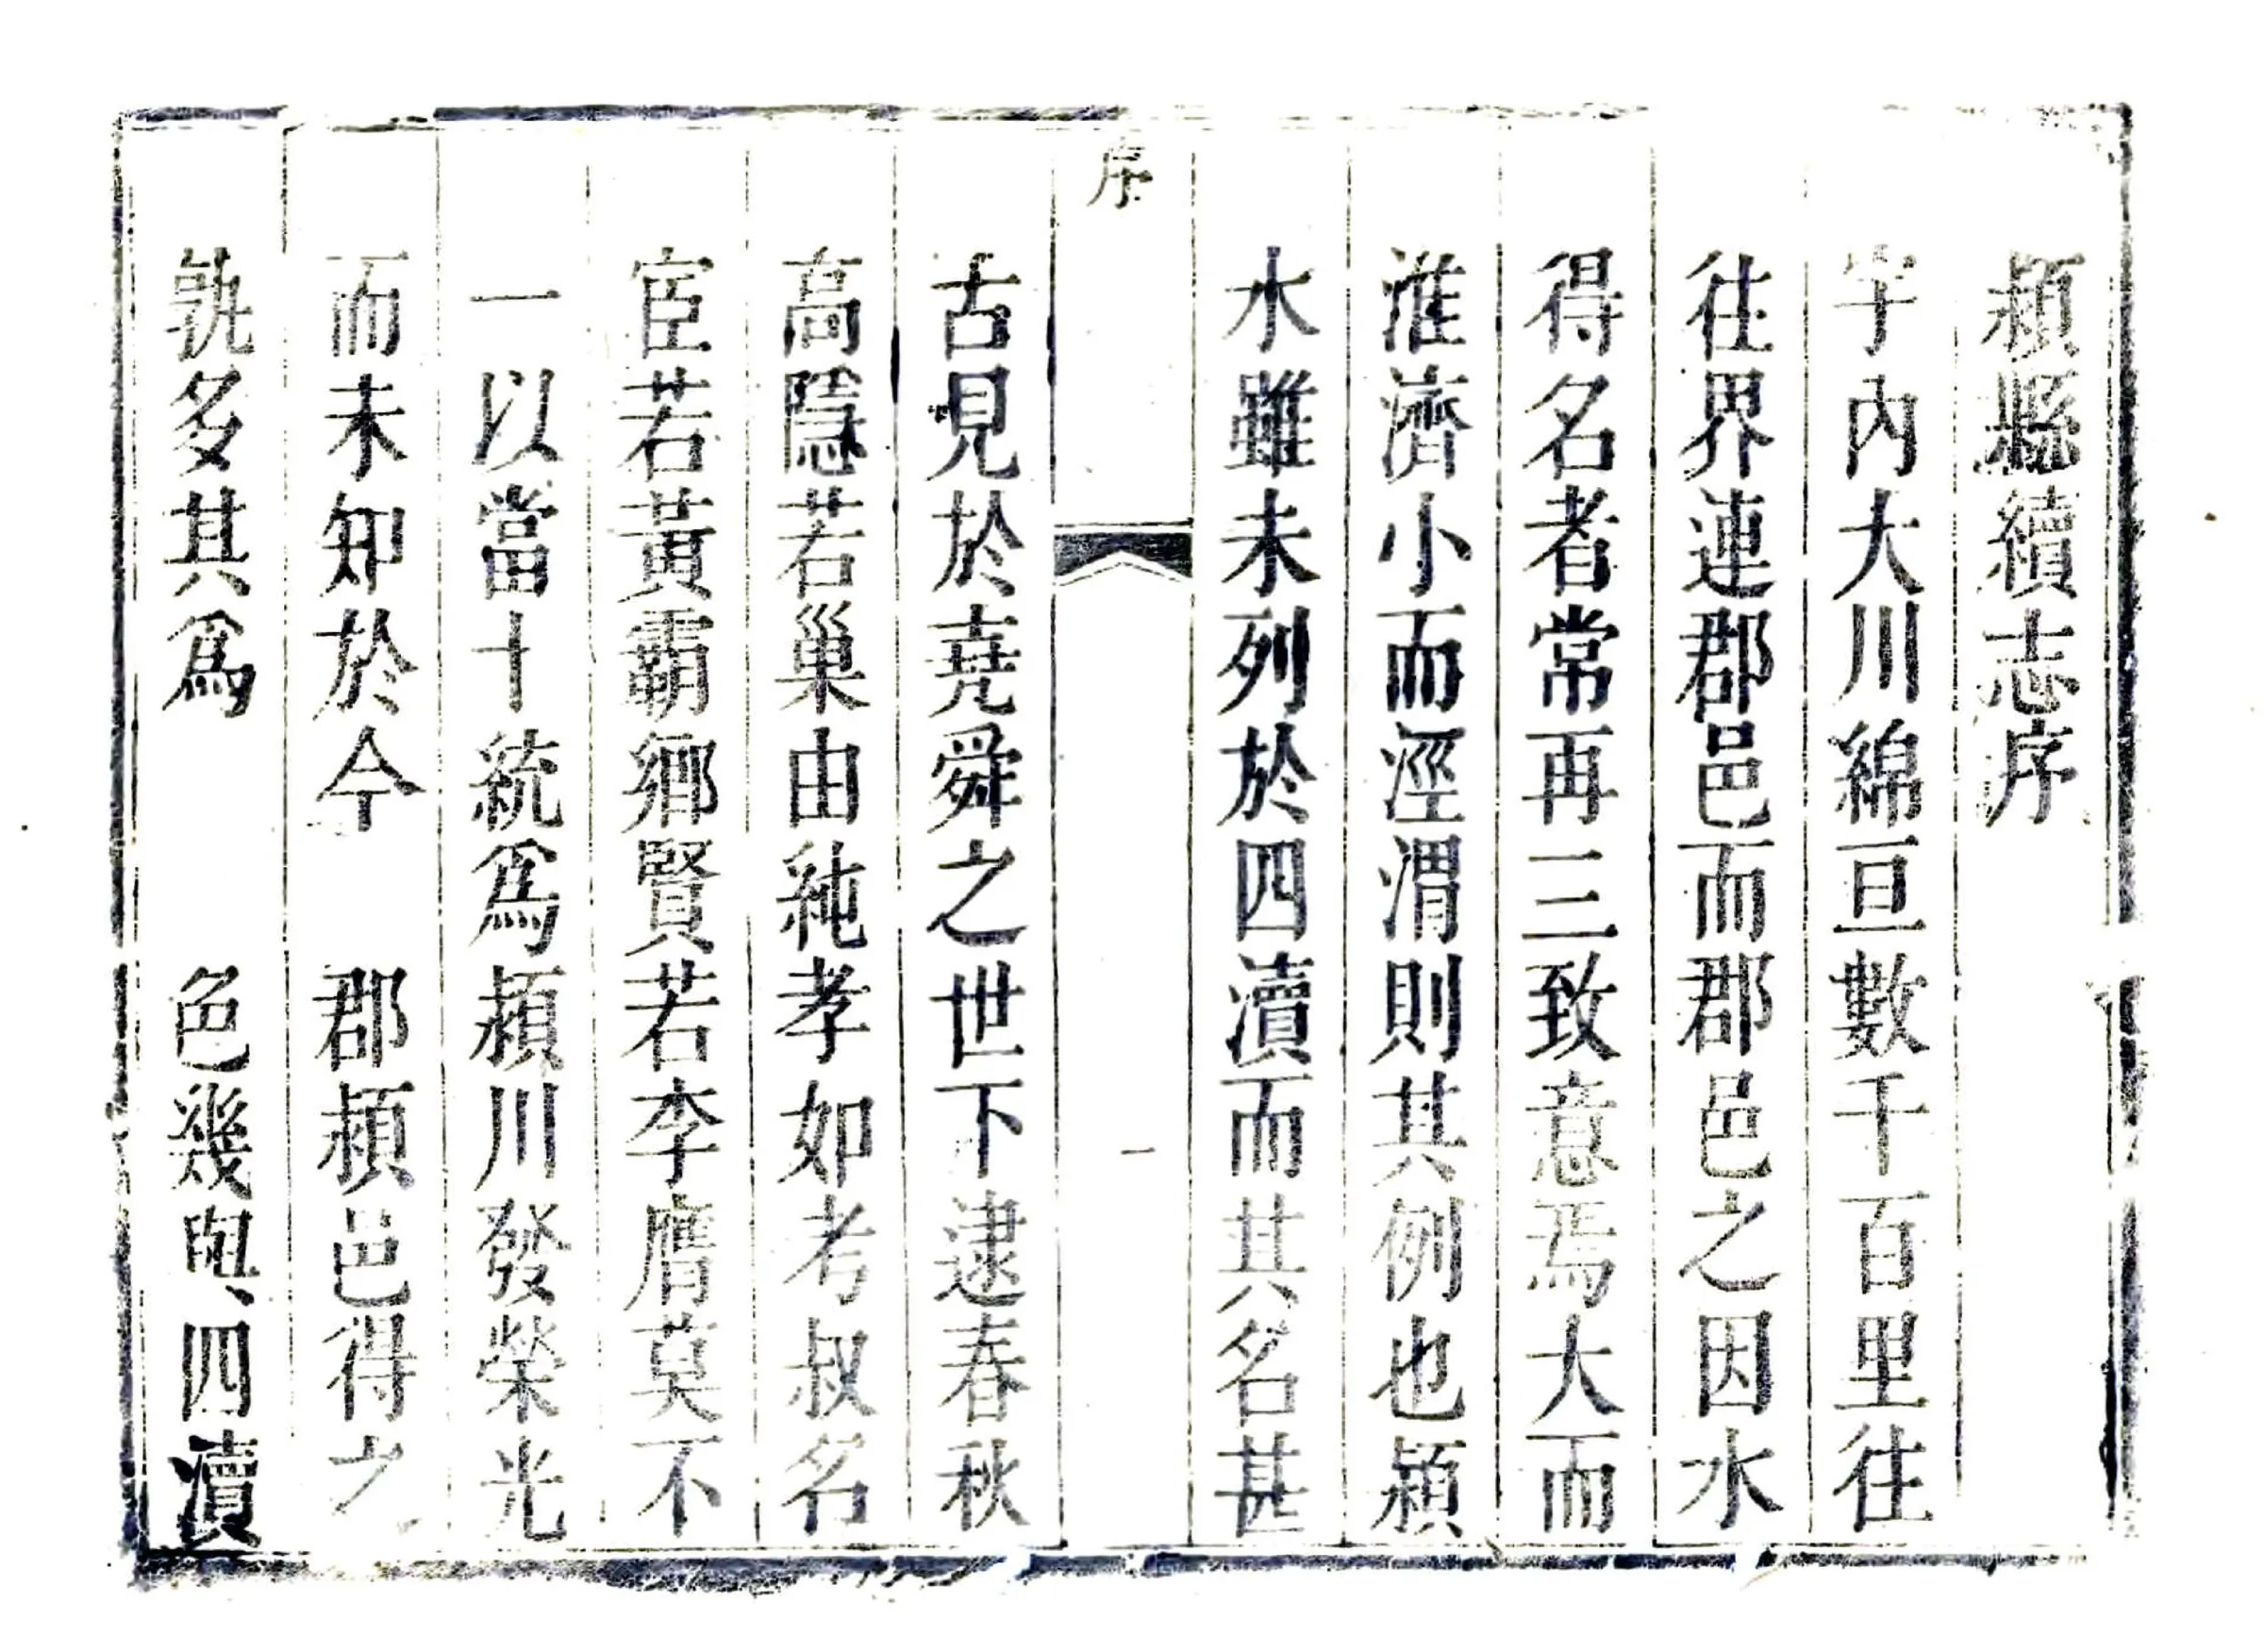 潁縣續志序
宇內大川綿亘數千百里往
往界連郡邑而郡邑之因水
得名者常再三致意焉大而
淮濟小而涇渭則其例也潁
水雖未列於四瀆而其名甚
序
一
古見於堯舜之世下逮春秋
高隱若巢由純孝如考叔名
宦若黃霸鄉賢若李膺莫不
一以當十統爲潁川發榮光
而未知於今　郡潁邑得之
孰多其爲　色幾與四瀆